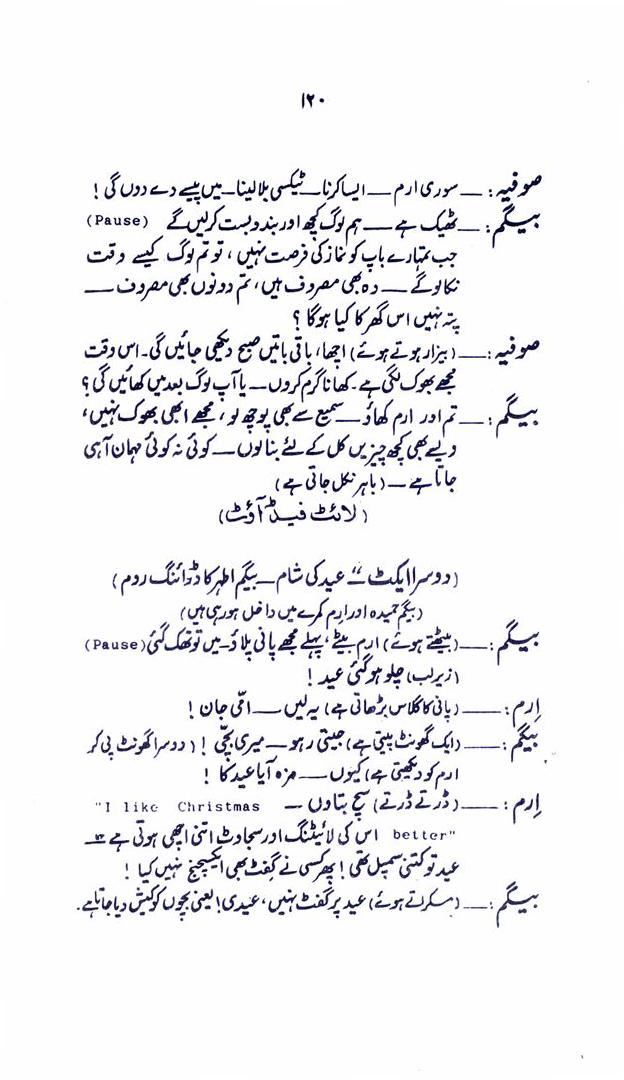 ۱۲۰
صوفیہ :__ سوری ارم __ ایسا کرنا __ ٹیکسی بلا لینا __ میں پیسے دے دوں گی !
بیگم :__ ٹھیک ہے __ ہم لوگ کچھ اور بندوبست کر لیں گے (Pause)
جب تمہارے باپ کو نماز کی فرصت نہیں، تو تم لوگ کیسے وقت
نکالو گے __ وہ بھی مصروف ہیں، تم دونوں بھی مصروف __
پتہ نہیں اس گھر کا کیا ہوگا ؟
صوفیہ :__ (بیزار ہوتے ہوئے) اچھا، باقی باتیں صبح دیکھی جائیں گی۔ اس وقت
مجھے بھوک لگی ہے۔ کھانا گرم کروں __ یا آپ لوگ بعد میں کھائیں گی ؟
بیگم :__ تم اور ارم کھاؤ __ سمیع سے بھی پوچھ لو، مجھے ابھی بھوک نہیں،
ویسے بھی کچھ چیزیں کل کے لئے بنا لوں __ کوئی نہ کوئی مہمان آ ہی
جاتا ہے __ (باہر نکل جاتی ہے)
(لائٹ فیڈ آؤٹ)
(دوسرا ایکٹ __ عید کی شام __ بیگم اطہر کا ڈرائنگ روم)
(بیگم حمیدہ اور ارم کمرے میں داخل ہو رہی ہیں)
بیگم :__ (بیٹھتے ہوئے) ارم بیٹے، پہلے مجھے پانی پلاؤ۔ میں تو تھک گئی (Pause)
(زیرلب) چلو ہو گئی عید !
اِرم :__ (پانی کا گلاس بڑھاتی ہے) یہ لیں __ امّی جان !
بیگم :__ (ایک گھونٹ پیتی ہے) جیتی رہو __ میری بچّی ! (دوسرا گھونٹ پی کر
ارم کو دیکھتی ہے) کیوں __ مزہ آیا عید کا !
اِرم :__ (ڈرتے ڈرتے) سچ بتاوں __ "I like Christmas
better" اس کی لائیٹنگ اور سجاوٹ اتنی اچھی ہوتی ہے __
عید تو کتنی سمپل تھی ! پھر کسی نے گفٹ بھی ایکسچینج نہیں کیا !
بیگم :__ (مسکراتے ہوئے) عید پر گفٹ نہیں، عیدی ! یعنی بچوں کو کیش دیا جاتا ہے۔